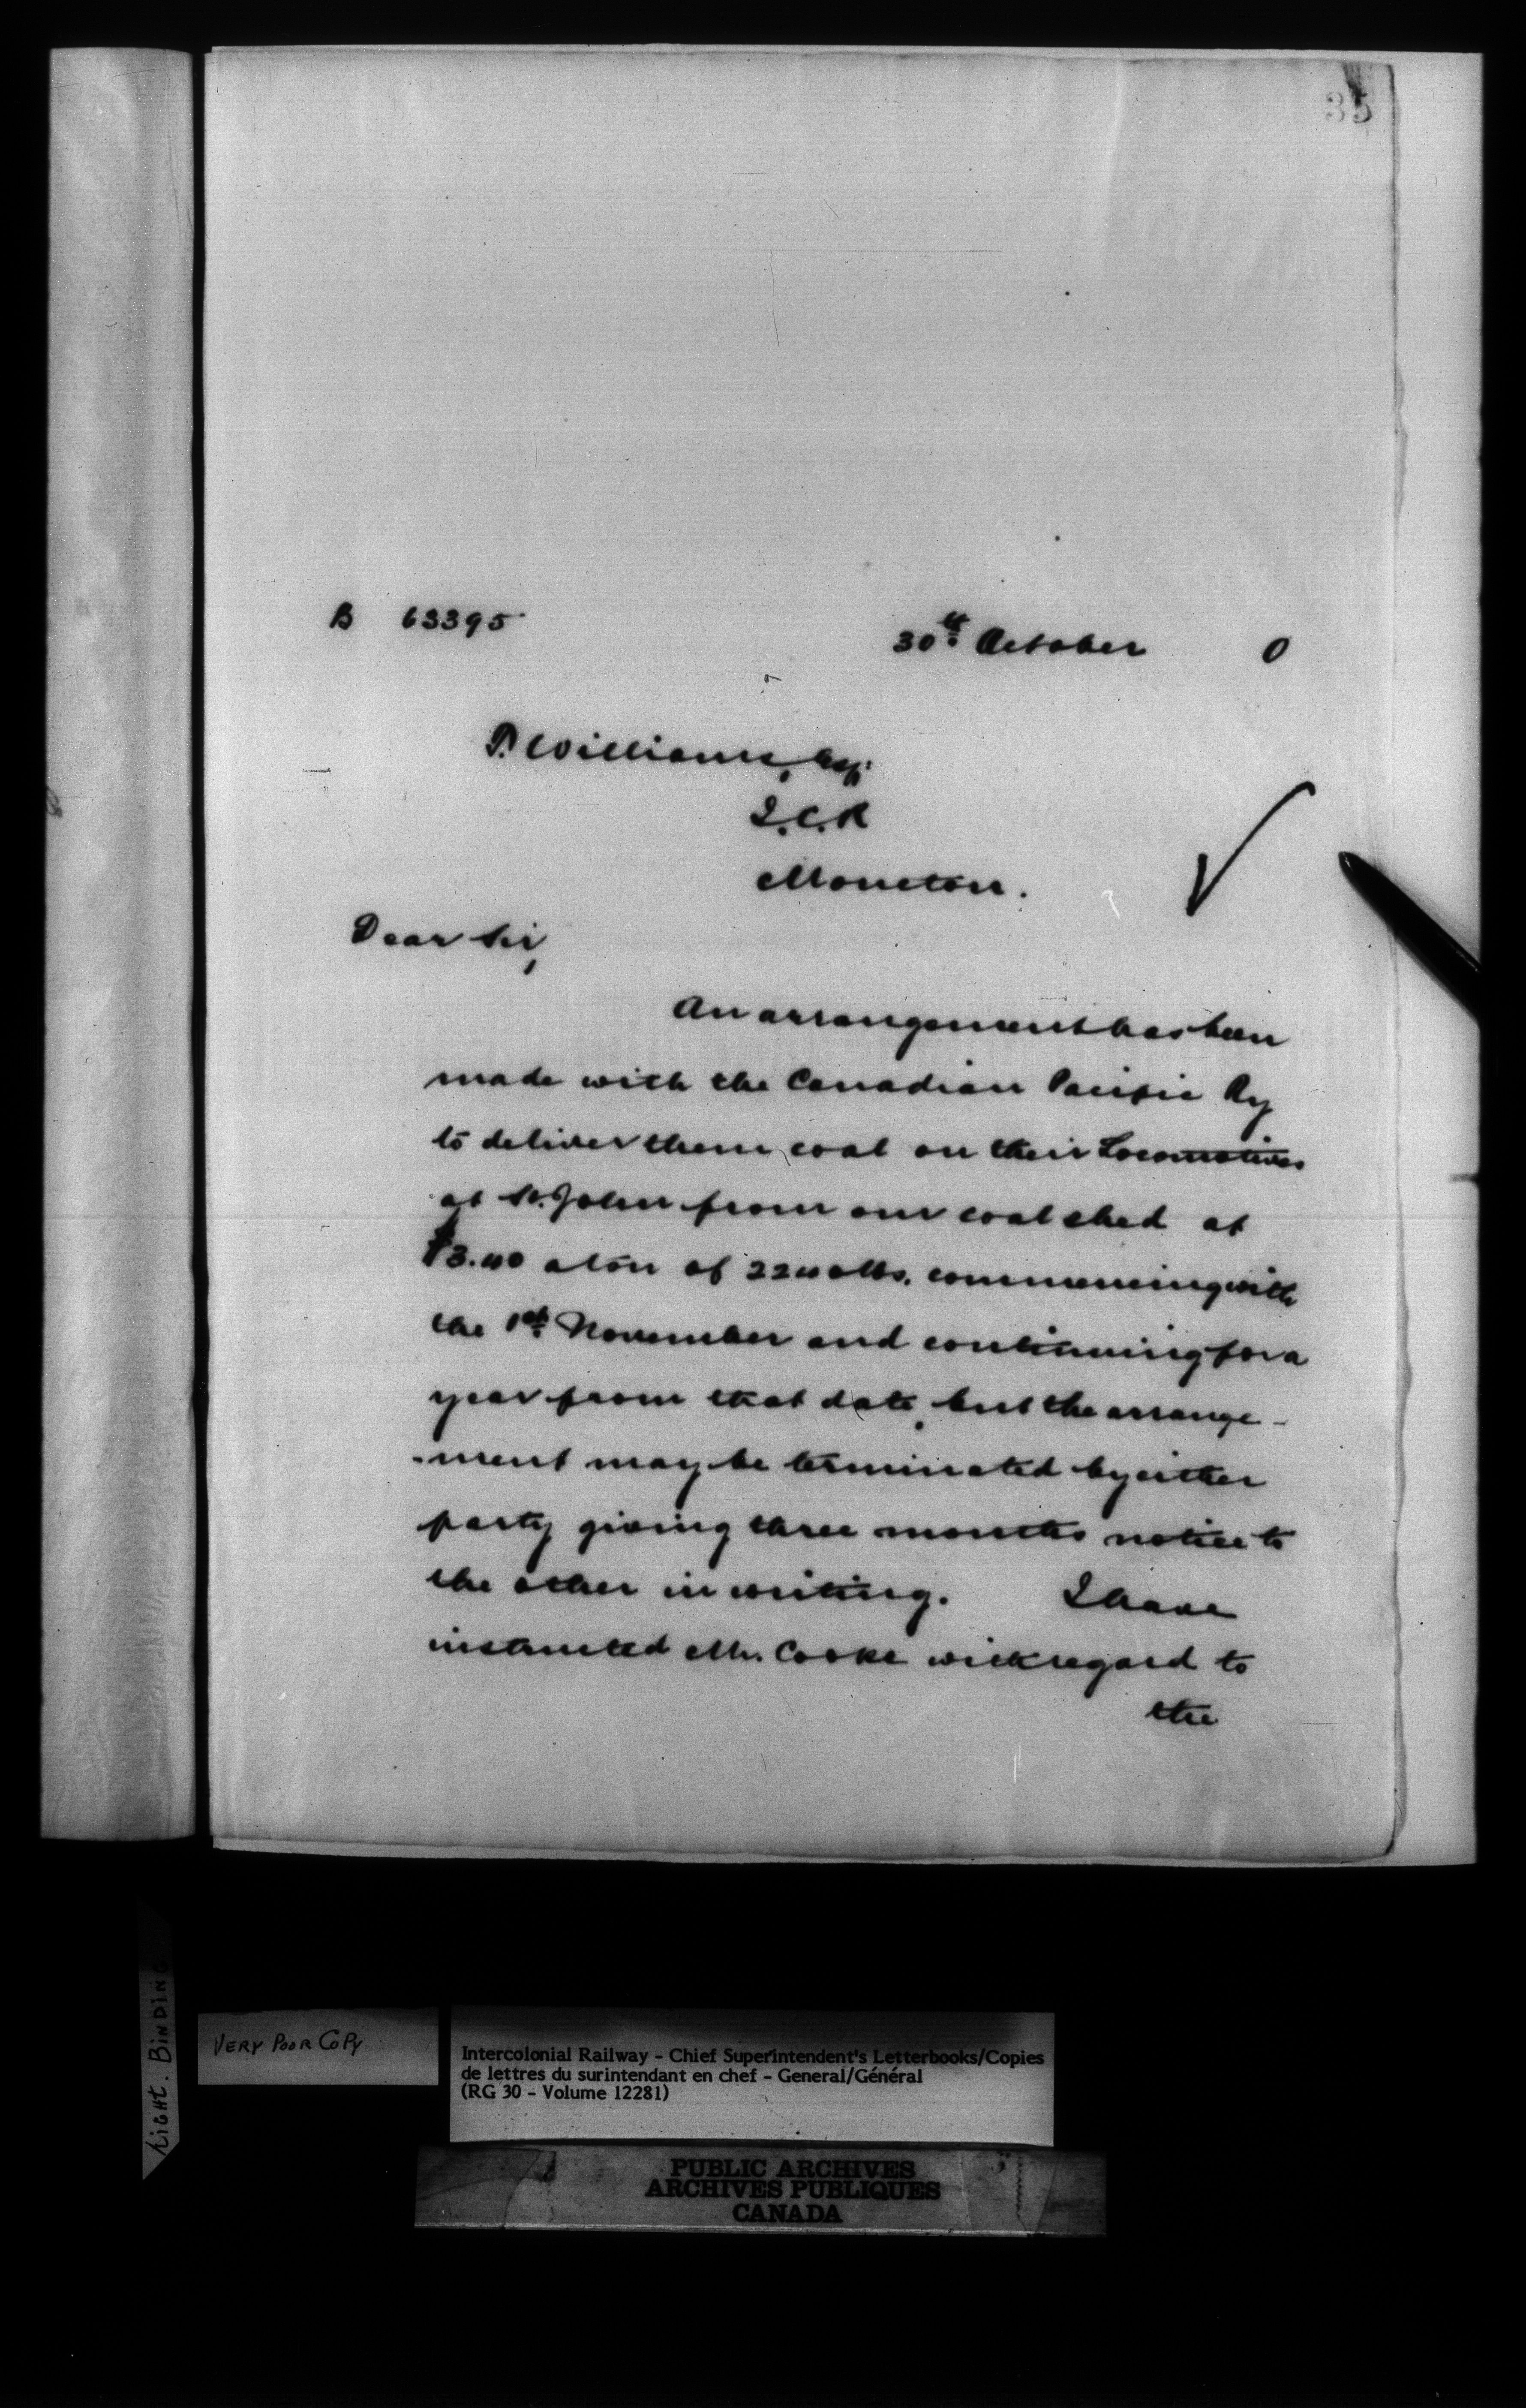 35
B 63395
30th October 0
T. Williams, Esq.
I.C.R
Moncton.
Dear Sir,
An arrangement has been
made with the Canadian Pacific Ry
to deliver them coal on their Locomotives
at St. John from our coal shed at
$3.40 a ton of 2240 lbs. commencing with
the 1st November and continuing for a
year from that date, but the arrange-
-ment may be terminated by either
party giving three months notice to
the other in writing. I have
instructed Mr. Cooke with regard to
the
TIGHT. BINDING
VERY POOR COPY
Intercolonial Railway - Chief Superintendent's Letterbooks/Copies
de lettres du surintendant en chef - General/Général
(RG 30 - Volume 12281)
PUBLIC ARCHIVES
ARCHIVES PUBLIQUES
CANADA